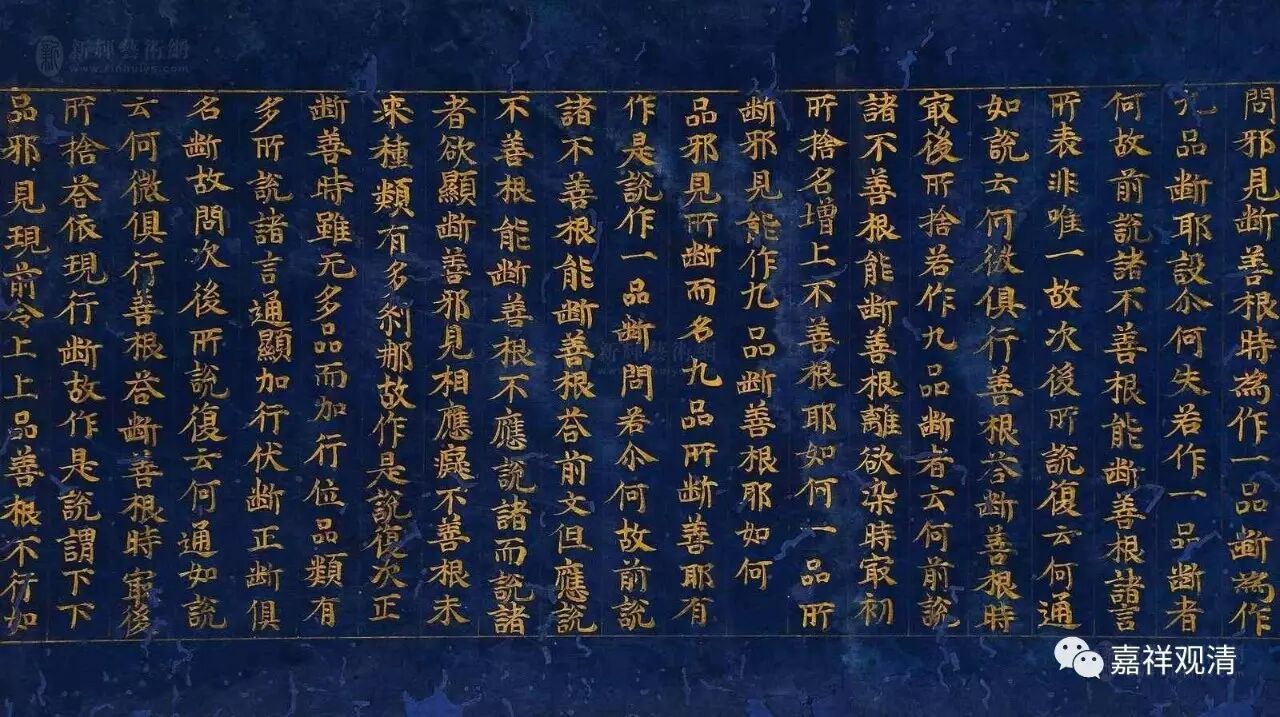 問邪見断善根時為作一品断為作
九品断耶設尒何失若作一品断者
何故前説諸不善根能断善根諸言
所表非唯一故次後所説復云何通
如説云何微俱行善根荅断善根時
㝡後所捨若作九品断者云何前説
諸不善根能断善根離欲染時㝡初
所捨名增上不善根耶如何一品所
断邪見能作九品断善根耶如何
品邪見所断而名九品所断善耶有
作是説作一品断問若尒何故前説
諸不善根能断善根荅前文但應説
不善根能断善根不應説諸而説諸
者欲顯断善邪見相應癡不善根未
来種類有多刹那故作是説復次正
断善時雖无多品而加行位品類有
多所説諸言通顯加行伏断正断俱
名断故問次後所説復云何通如説
云何微俱行善根荅断善根時㝡後
所捨荅依現行断故作是説謂下下
品邪見現前令上上品善根不行如
新輝藝術網
www.xinhuiys.com
新輝藝術網
嘉祥观清